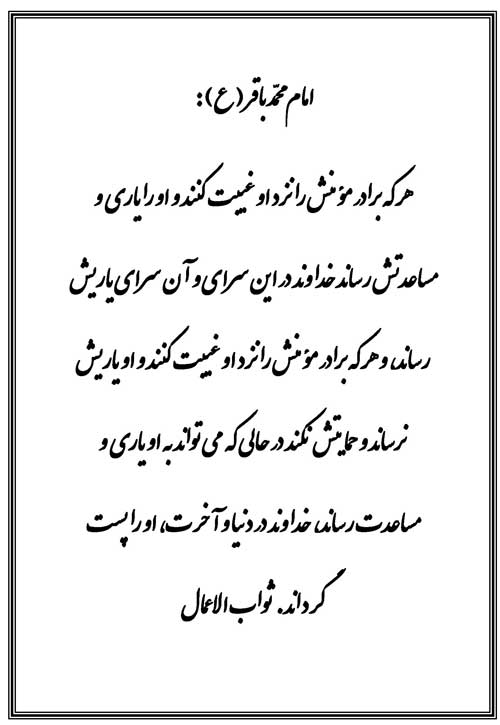 امام محمّد باقر (ع):
هرکه برادر مؤمنش را نزد او غیبت کنند و او را یاری و
مساعدتش رساند خداوند در این سرای و آن سرای یاریش
رساند، و هرکه برادر مؤمنش را نزد او غیبت کنند و او یاریش
نرساند و حمایتش نکند در حالی که می تواند به او یاری و
مساعدت رساند، خداوند در دنیا و آخرت، او را پست
گرداند. ثواب الاعمال